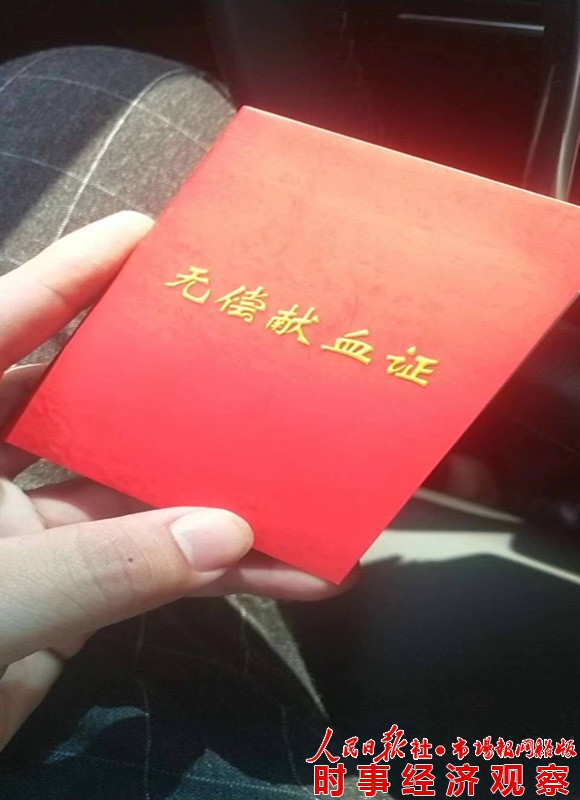 无偿献血证
人民日报社·市场报网络版
时事经济观察